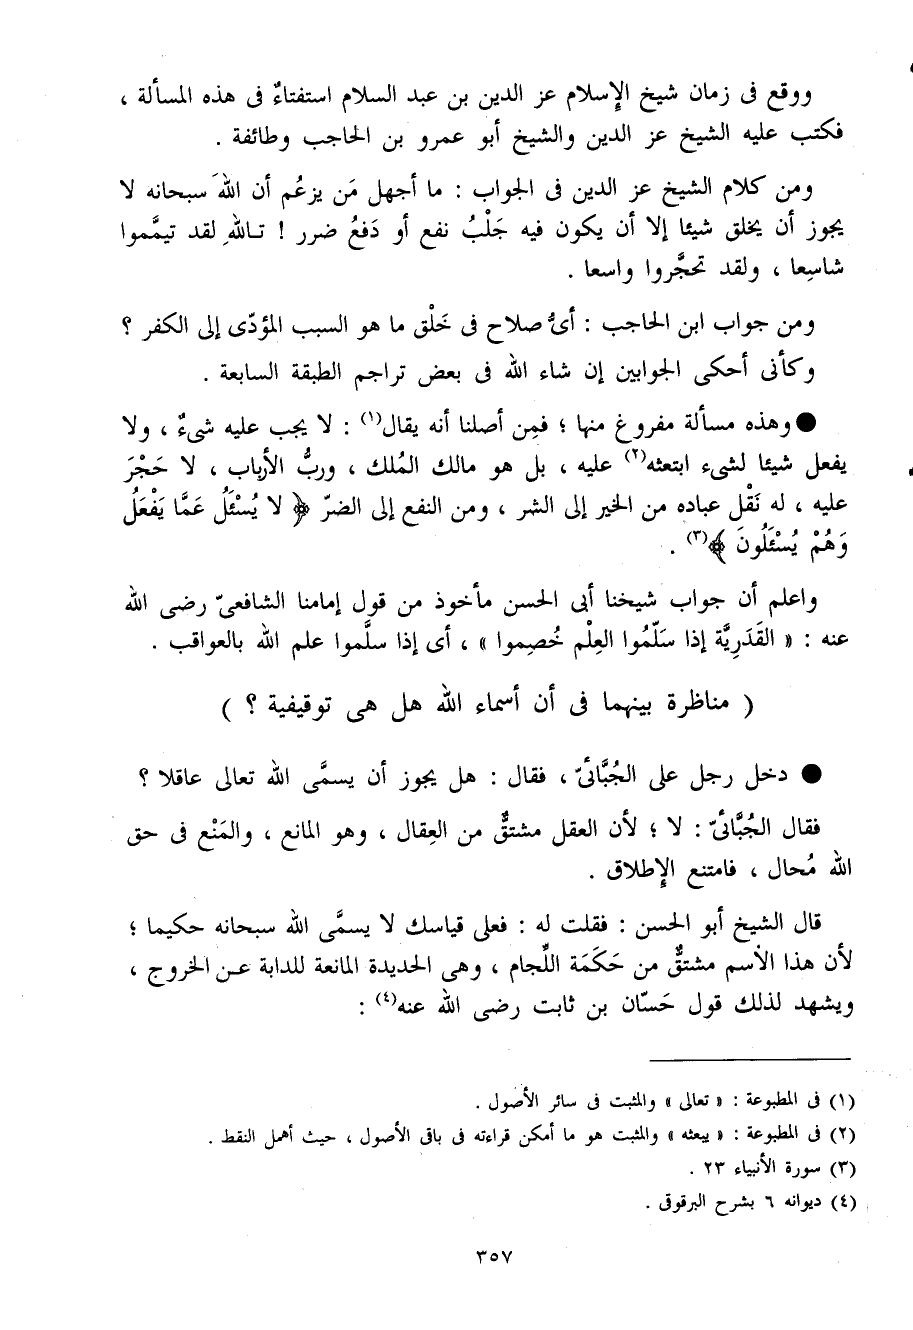 ووقع فى زمان شيخ الإسلام عز الدين بن عبد السلام استفتاءٌ فى هذه المسألة ،
فكتب عليه الشيخ عز الدين والشيخ أبو عمرو بن الحاجب وطائفة .
ومن كلام الشيخ عز الدين فى الجواب : ما أجهل مَن يزعُم أن اللهَ سبحانه لا
يجوز أن يخلق شيئا إلا أن يكون فيه جَلْبُ نفع أو دَفعُ ضرر ! تاللهِ لقد تيمَّموا
شاسِعا ، ولقد تحجَّروا واسعا .
ومن جواب ابن الحاجب : أىُّ صلاح فى خَلْق ما هو السبب المؤدّى إلى الكفر ؟
وكأنى أحكى الجوابين إن شاء الله فى بعض تراجم الطبقة السابعة .
● وهذه مسألة مفروغ منها ؛ فمِن أصلنا أنه يقال(١) : لا يجب عليه شىءٌ ، ولا
يفعل شيئا لشىء ابتعثه(٢) عليه ، بل هو مالك المُلك ، وربُّ الأرباب ، لا حَجْرَ
عليه ، له نَقْل عباده من الخير إلى الشر ، ومن النفع إلى الضرّ ﴿ لا يُسْئَلُ عَمَّا يَفْعَلُ
وَهُمْ يُسْئَلُونَ ﴾(٣) .
واعلم أن جواب شيخنا أبى الحسن مأخوذ من قول إمامنا الشافعىّ رضى الله
عنه : « القَدَرِيَّة إذا سَلّمُوا العِلْم خُصِموا » ، أى إذا سلَّموا علم الله بالعواقب .
( مناظرة بينهما فى أن أسماء الله هل هى توقيفية ؟ )
● دخل رجل على الجُبَّائىّ ، فقال : هل يجوز أن يسمَّى الله تعالى عاقلا ؟
فقال الجُبَّائىّ : لا ؛ لأن العقل مشتقٌّ من العِقال ، وهو المانع ، والمَنْع فى حق
الله مُحال ، فامتنع الإطلاق .
قال الشيخ أبو الحسن : فقلت له : فعلى قياسك لا يسمَّى الله سبحانه حكيما ؛
لأن هذا الأسم مشتقٌّ من حَكَمَة اللِّجام ، وهى الحديدة المانعة للدابة عن الخروج ،
ويشهد لذلك قول حَسّان بن ثابت رضى الله عنه(٤) :
(١) فى المطبوعة : « تعالى » والمثبت فى سائر الأصول .
(٢) فى المطبوعة : « يبعثه » والمثبت هو ما أمكن قراءته فى باقى الأصول ، حيث أهمل النقط .
(٣) سورة الأنبياء ٢٣ .
(٤) ديوانه ٦ بشرح البرقوقى .
٣٥٧